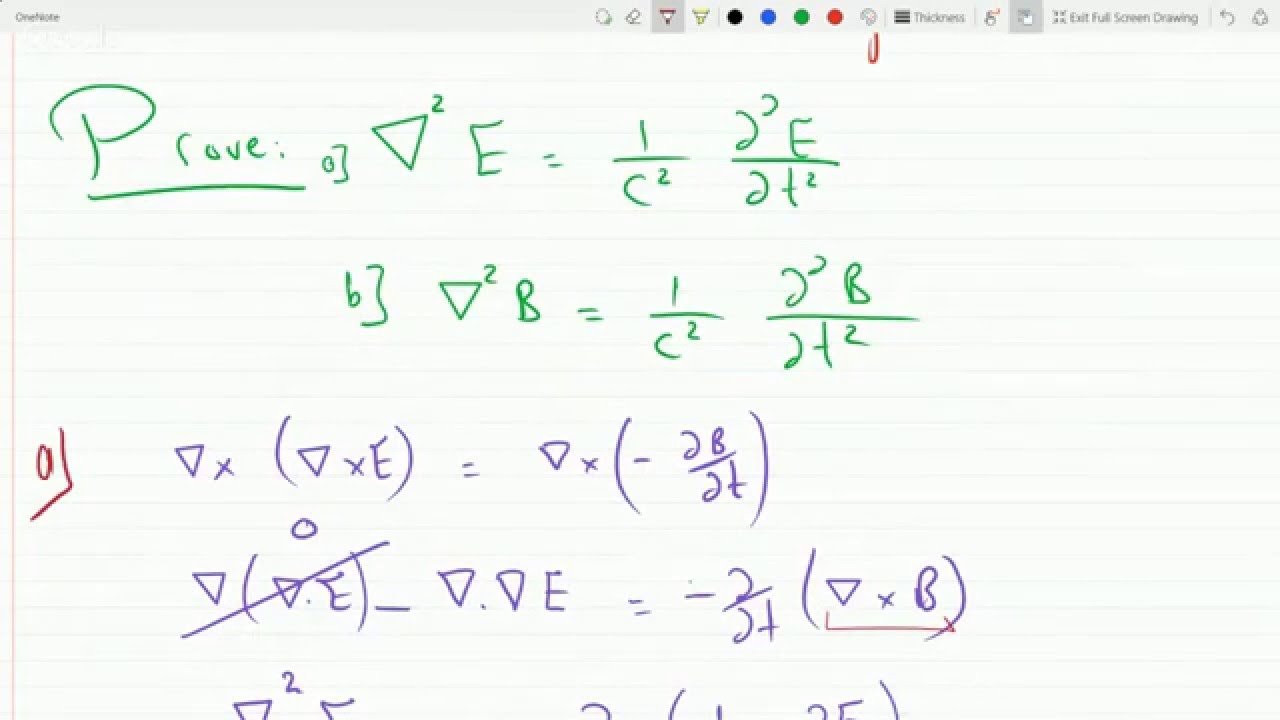 OneNote Thickness Exit Full Screen Drawing
Prove: a] ∇² E = 1/c² ∂²E/∂t²
b] ∇² B = 1/c² ∂²B/∂t²
a) ∇× (∇×E) = ∇×(- ∂B/∂t)
0
∇(∇.E) - ∇.∇E = -∂/∂t (∇×B)
∇² E ∂ (1 ∂E)